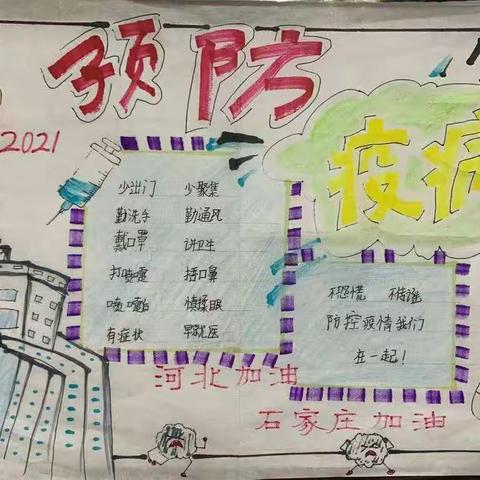 预防
2021
疫病
少出门 少聚集
勤洗手 勤通风
戴口罩 讲卫生
打喷嚏 捂口鼻
喷嚏后 慎揉眼
有症状 早就医
不恐慌 不传谣
防控疫情我们
在一起!
河北加油
石家庄加油